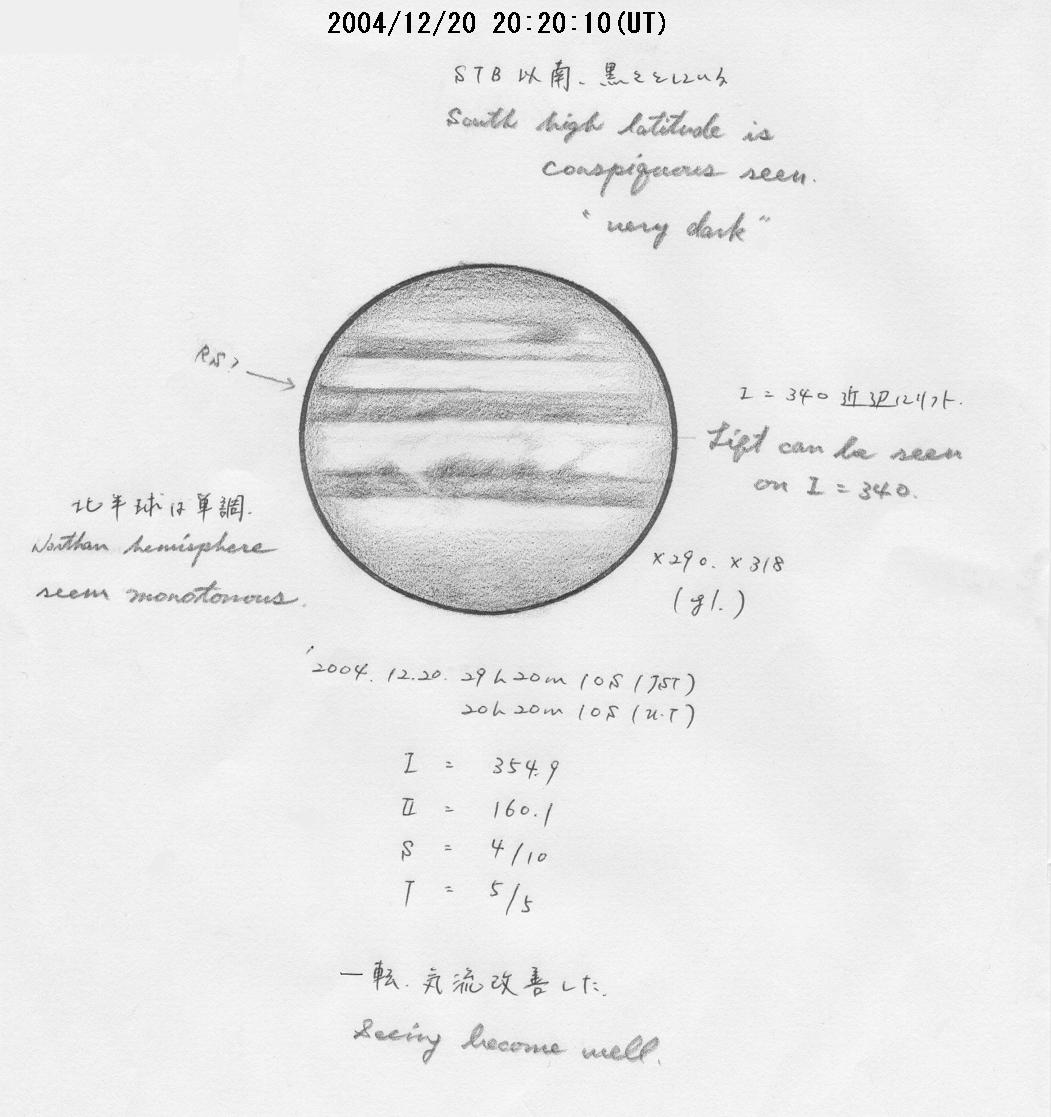 2004/12/20 20:20:10(UT)
STB 以南、黒々としている
South high latitude is
conspiquous seen.
"very dark"
RS>
I = 340 近辺にリフト.
Lift can be seen
on I = 340.
北半球は単調.
Northan hemisphere
seem monotonous.
×290. ×318
(gl.)
'2004. 12.20. 29h 20m 10S (JST)
20h 20m 10S (U.T)
I = 354.9
II = 160.1
S = 4/10
T = 5/5
一転、気流改善した.
Seeing become well.